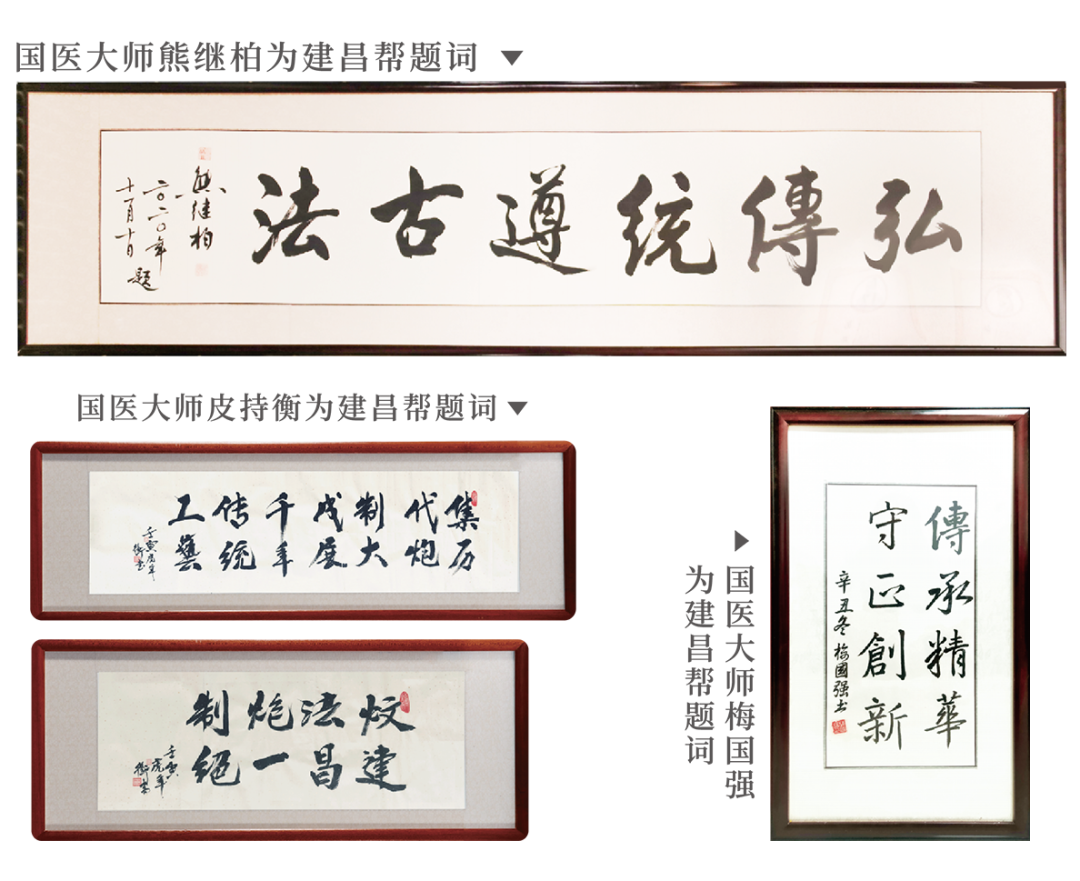 国医大师熊继柏为建昌帮题词
弘傳统遵古法
熊继柏
二〇二〇年
题
国医大师皮持衡为建昌帮题词
集历
代炮
制大
成展
千年
传统
工藝
壬寅虎年
衡书
炆法炮制
建昌一绝
壬寅
虎年
衡书
国医大师梅国强
为建昌帮题词
傳承精華
守正創新
辛丑冬梅國强书